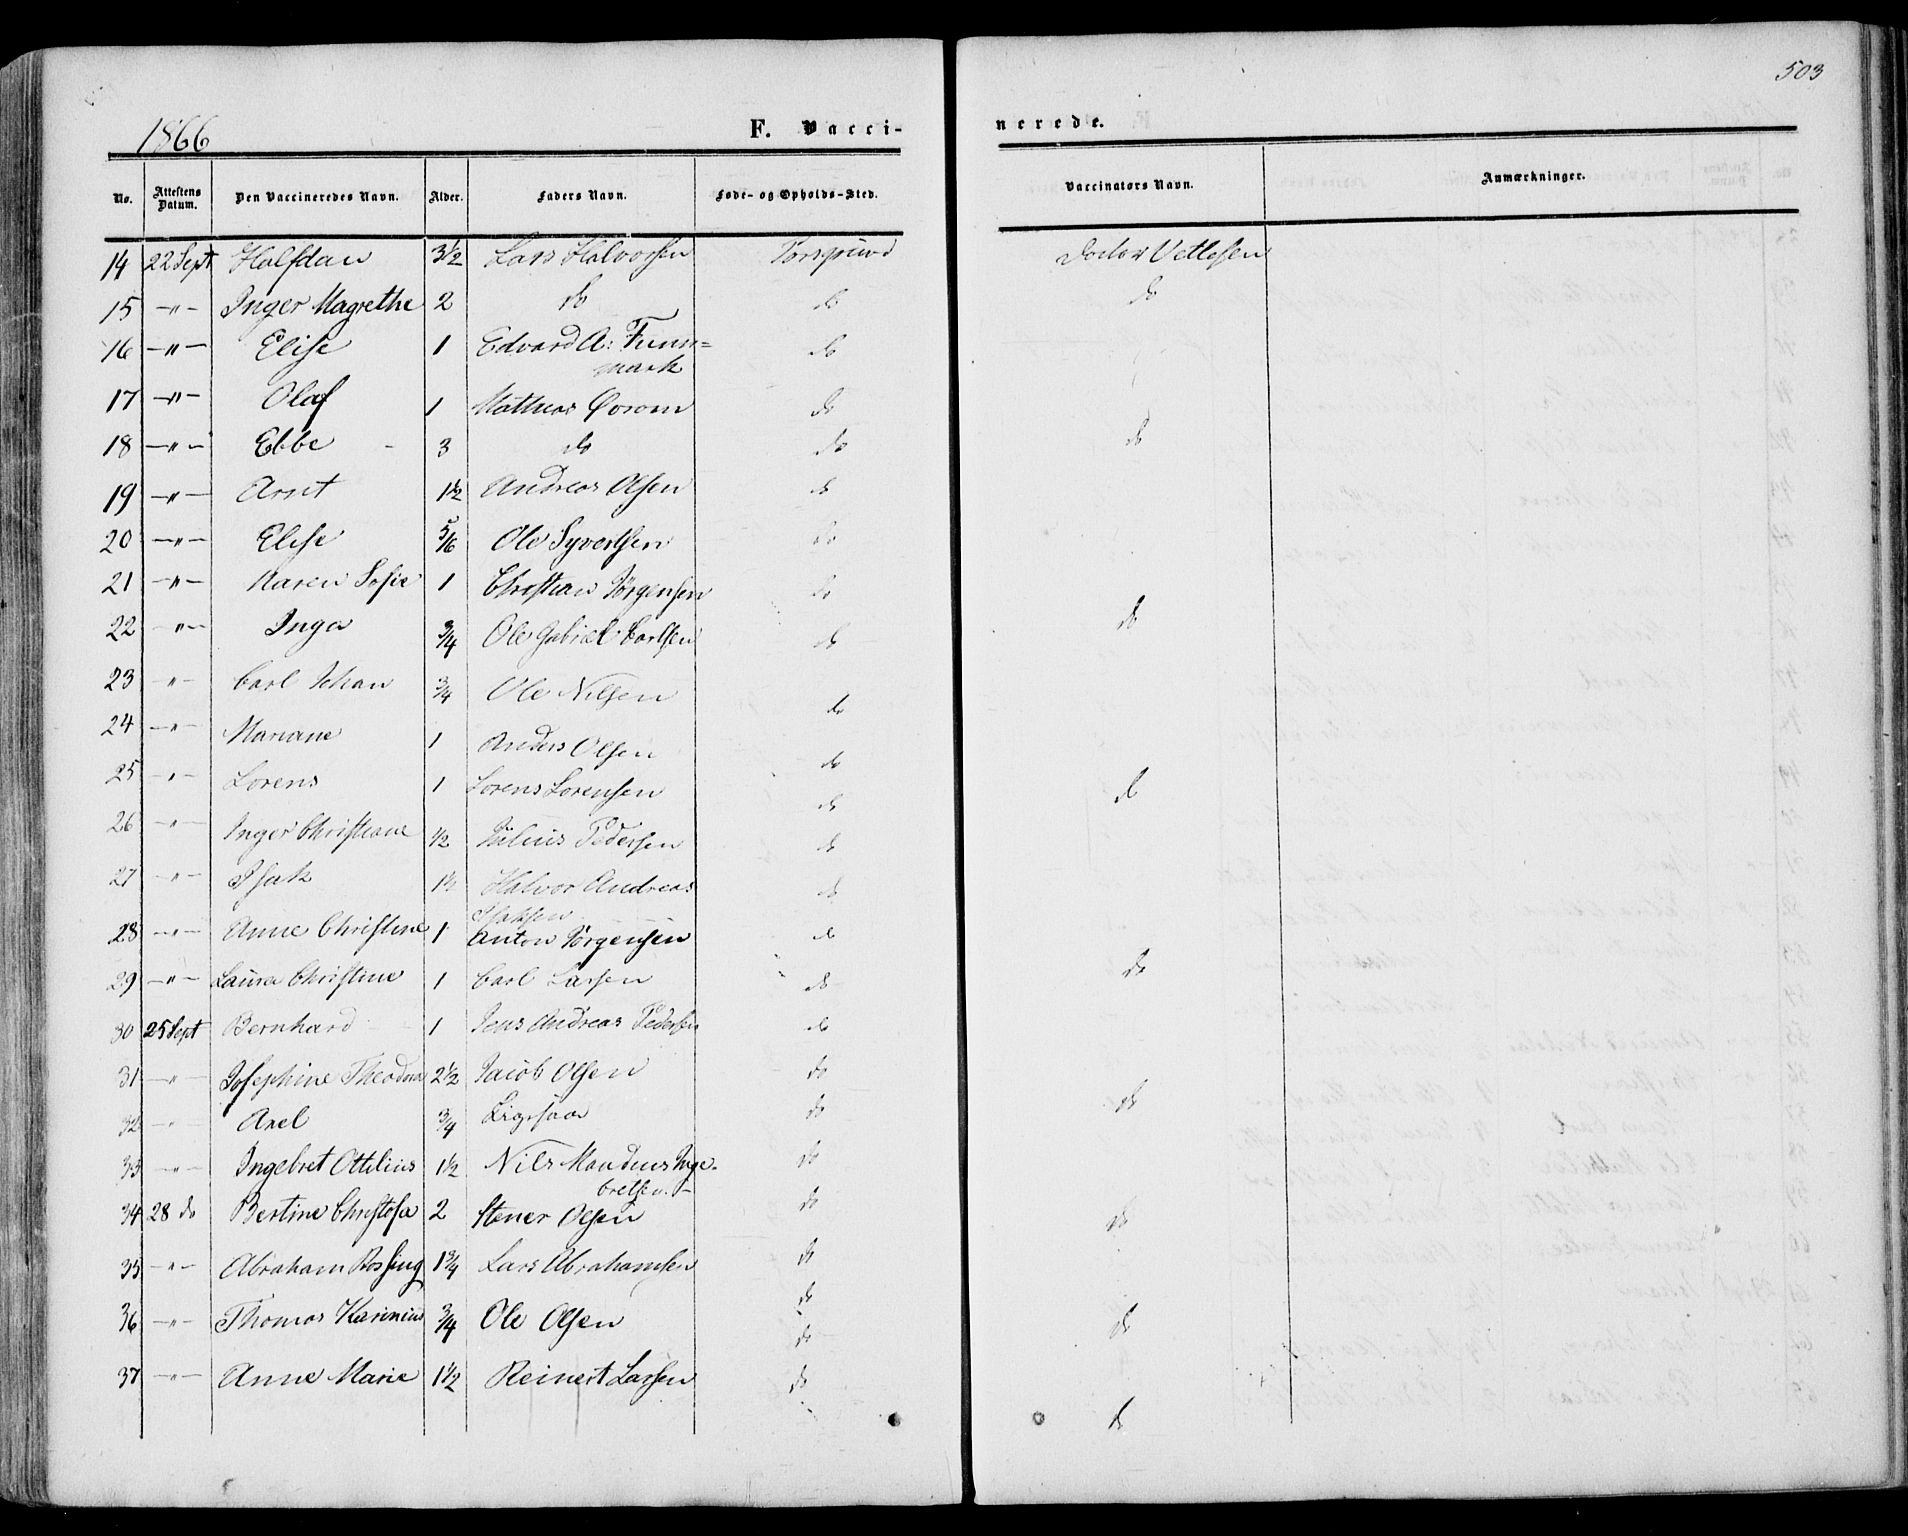 503
1866 F. Vacci- nerede.
No. Attestens Datum. Den Vaccineredes Navn. Alder. Faders Navn. Føde- og Opholds-Sted. Vaccinators Navn. Anmærkninger.
14 22 Sept Halfdan 3½ Lars Halvorsen Porsgrund Doctor Vettesen
15 —"— Inger Magrethe 2 do do do
16 —"— Elise 1 Edvard A: Funn=
mark do
17 —"— Olaf 1 Mathias do
18 —"— Ebbe - 3 do do do
19 —"— Arnt 1½ Andreas Olsen do
20 —"— Elise 5/6 Ole Syvertsen do
21 —"— Karen Sofie 1 Christian Jørgensen do
22 —"— Inga ¾ Ole Gabriel Carlsen do do
23 —"— Carl Johan ¾ Ole Nilsen do
24 —"— Mariane 1 Anders Olsen do
25 —"— Lorens 1 Lorens Lorensen do do
26 —"— Inger Christiane ½ Julius Pedersen do
27 —"— Isak 1½ Halvor Andreas
Isaksen do
28 —"— Anne Christine 1 Anton Jørgensen do
29 —"— Laura Christine 1 Carl Larsen do do
30 25 Sept Bernhard 1 Jens Andreas Pedersen do
31 —"— Josephine Theodora 2½ Jacob Olsen do
32 —"— Axel ¾ do do
33 —"— Ingebret Ottilius 1½ Nils Inge-
bretsen. do
34 28 do Bertine Christofa 2 Stener Olsen do do
35 —"— Abraham Rossing 1¾ Lars Abrahamsen do
36 —"— Thomas Karinius ¾ Ole Olsen do do
do
37 —"— Anne Marie 1½ Reinert Larsen do do